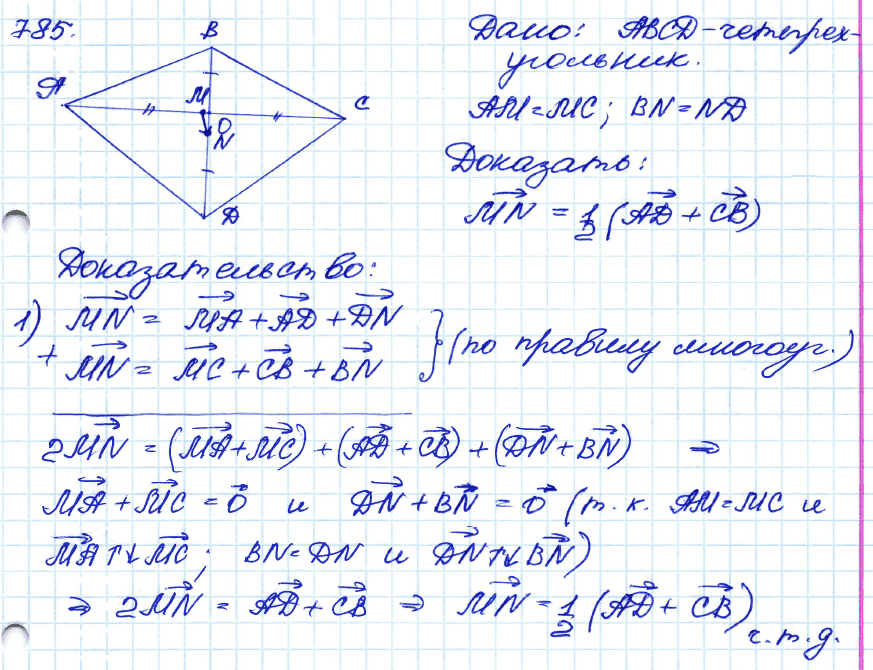 785.
Дано: ABCD – четырех-
угольник.
AM = MC; BN = ND
Доказать:
\overrightarrow{MN} = \frac{1}{2}(\overrightarrow{AD} + \overrightarrow{CB})
B
A
M
C
O
N
D
Доказательство:
1) \overrightarrow{MN} = \overrightarrow{MA} + \overrightarrow{AD} + \overrightarrow{DN}
+ \overrightarrow{MN} = \overrightarrow{MC} + \overrightarrow{CB} + \overrightarrow{BN} } (по правилу многоуг.)
2\overrightarrow{MN} = (\overrightarrow{MA} + \overrightarrow{MC}) + (\overrightarrow{AD} + \overrightarrow{CB}) + (\overrightarrow{DN} + \overrightarrow{BN}) ⇒
\overrightarrow{MA} + \overrightarrow{MC} = \vec{0} и \overrightarrow{DN} + \overrightarrow{BN} = \vec{0} (т. к. AM = MC и
\overrightarrow{MA} ↑↓ \overrightarrow{MC}; BN = DN и \overrightarrow{DN} ↑↓ \overrightarrow{BN})
⇒ 2\overrightarrow{MN} = \overrightarrow{AD} + \overrightarrow{CB} ⇒ \overrightarrow{MN} = \frac{1}{2}(\overrightarrow{AD} + \overrightarrow{CB})
ч.т.д.